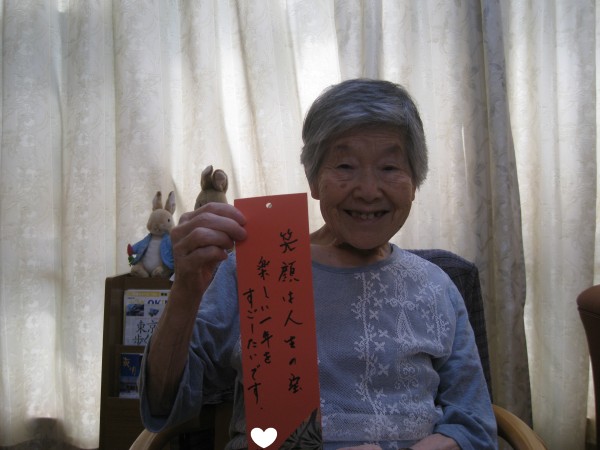 笑顔は人生の宝
楽しい一年を
すごしたいです。
OK
東京